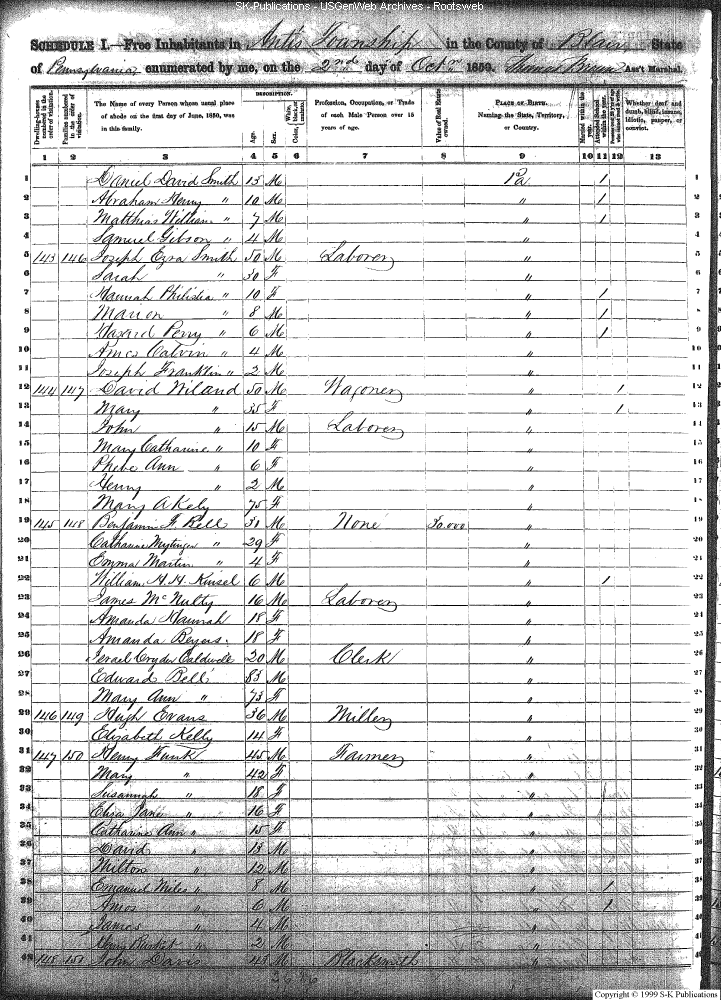 SK-Publications - USGenWeb Archives - Rootsweb
SCHEDULE I.—Free Inhabitants in Antis Township in the County of Blair State
of Pennsylvania enumerated by me, on the 2nd day of Octr 1850. Thomas Ass't Marshal.
Dwelling-houses numbered in the order of visitation.
Families numbered in the order of visitation.
The Name of every Person whose usual place of abode on the first day of June, 1850, was in this family.
DESCRIPTION.
Age.
Sex.
White, Color, black, or mulatto.
Profession, Occupation, or Trade of each Male Person over 15 years of age.
Value of Real Estate owned.
PLACE OF BIRTH. Naming the State, Territory, or Country.
Married within the year.
Attended School within the year.
Whether deaf and dumb, blind, insane, idiotic, pauper, or convict.
1 2 3 4 5 6 7 8 9 10 11 12 13
1 Daniel David Smith 13 M Pa 1 1
2 Abraham Henry " 10 M " 1 2
3 Matthias William " 7 M " 1 3
4 Samuel Gibson " 4 M " 4
5 143 146 Joseph Ezra Smith 50 M Laborer " 5
6 Sarah " 30 F " 6
7 Hannah " 10 F " 1 7
8 Marion " 8 M " 1 8
9 Perry " 6 M " 1 9
10 Amos Calvin " 4 M " 10
11 Joseph Franklin " 2 M " 11
12 144 147 David Wiland 50 M Wagoner " 1 12
13 Mary " 35 F " 1 13
14 John " 15 M Laborer " 14
15 Mary Catharine " 10 F " 15
16 Phebe Ann " 6 F " 16
17 Henry " 2 M " 17
18 Mary Akely 75 F " 18
19 145 148 Benjamin F. Bell 31 M None 30,000 " 19
20 Catharine Mytinger " 29 F " 20
21 Emma Martin " 4 F " 21
22 William H. H. Kinsel 6 M " 1 22
23 James McNulty 16 M Laborer " 23
24 Amanda Hannah 18 F " 24
25 Amanda Beyers. 18 F " 25
26 Israel Cryder Caldwell 20 M Clerk " 26
27 Edward Bell 83 M " 27
28 Mary Ann " 73 F " 28
29 146 149 Hugh Evans 36 M Miller " 29
30 Elizabeth Kelly 14 F " 30
31 147 150 Henry Funk 45 M Farmer " 31
32 Mary " 42 F " 32
33 Susannah " 18 F " 33
34 Eliza Jane " 16 F " 34
35 Catharine Ann " 15 F " 35
36 David " 13 M " 36
37 Milton " 12 M " 37
38 Emanuel Miles " 8 M " 1 38
39 Amos " 6 M " 1 39
40 James " 4 M " 40
41 Henry " 2 M " 41
42 148 151 John Davis 43 M Blacksmith " 42
Copyright © 1999 S-K Publications